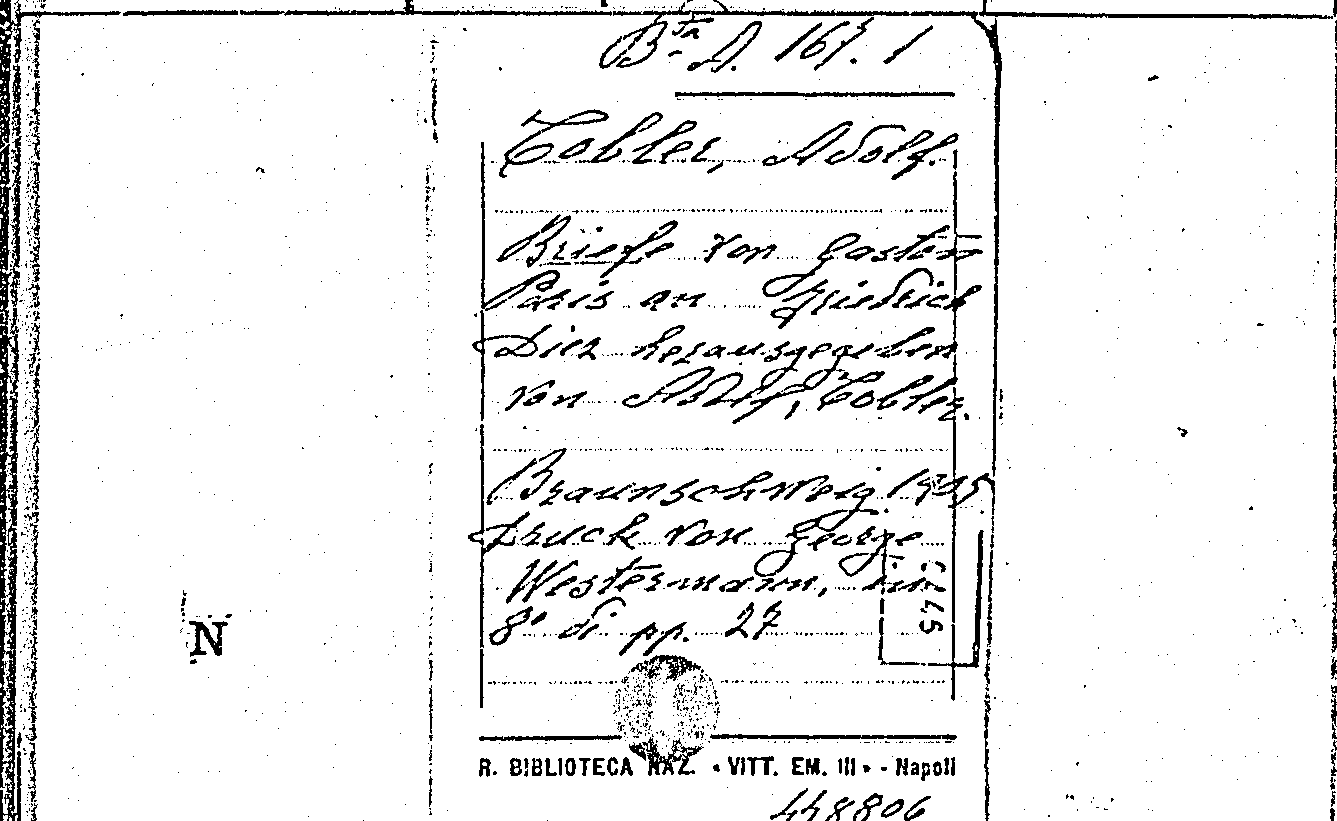 Bta A. 167. 1
Tobler, Adolf.
Briefe von Gaston
Paris an Friedrich
Diez herausgegeben
von Adolf Tobler.
Braunschweig 1905
Druck von George
Westermann, in
8° di pp. 27
N
R. BIBLIOTECA NAZ. « VITT. EM. III » - Napoli
448806